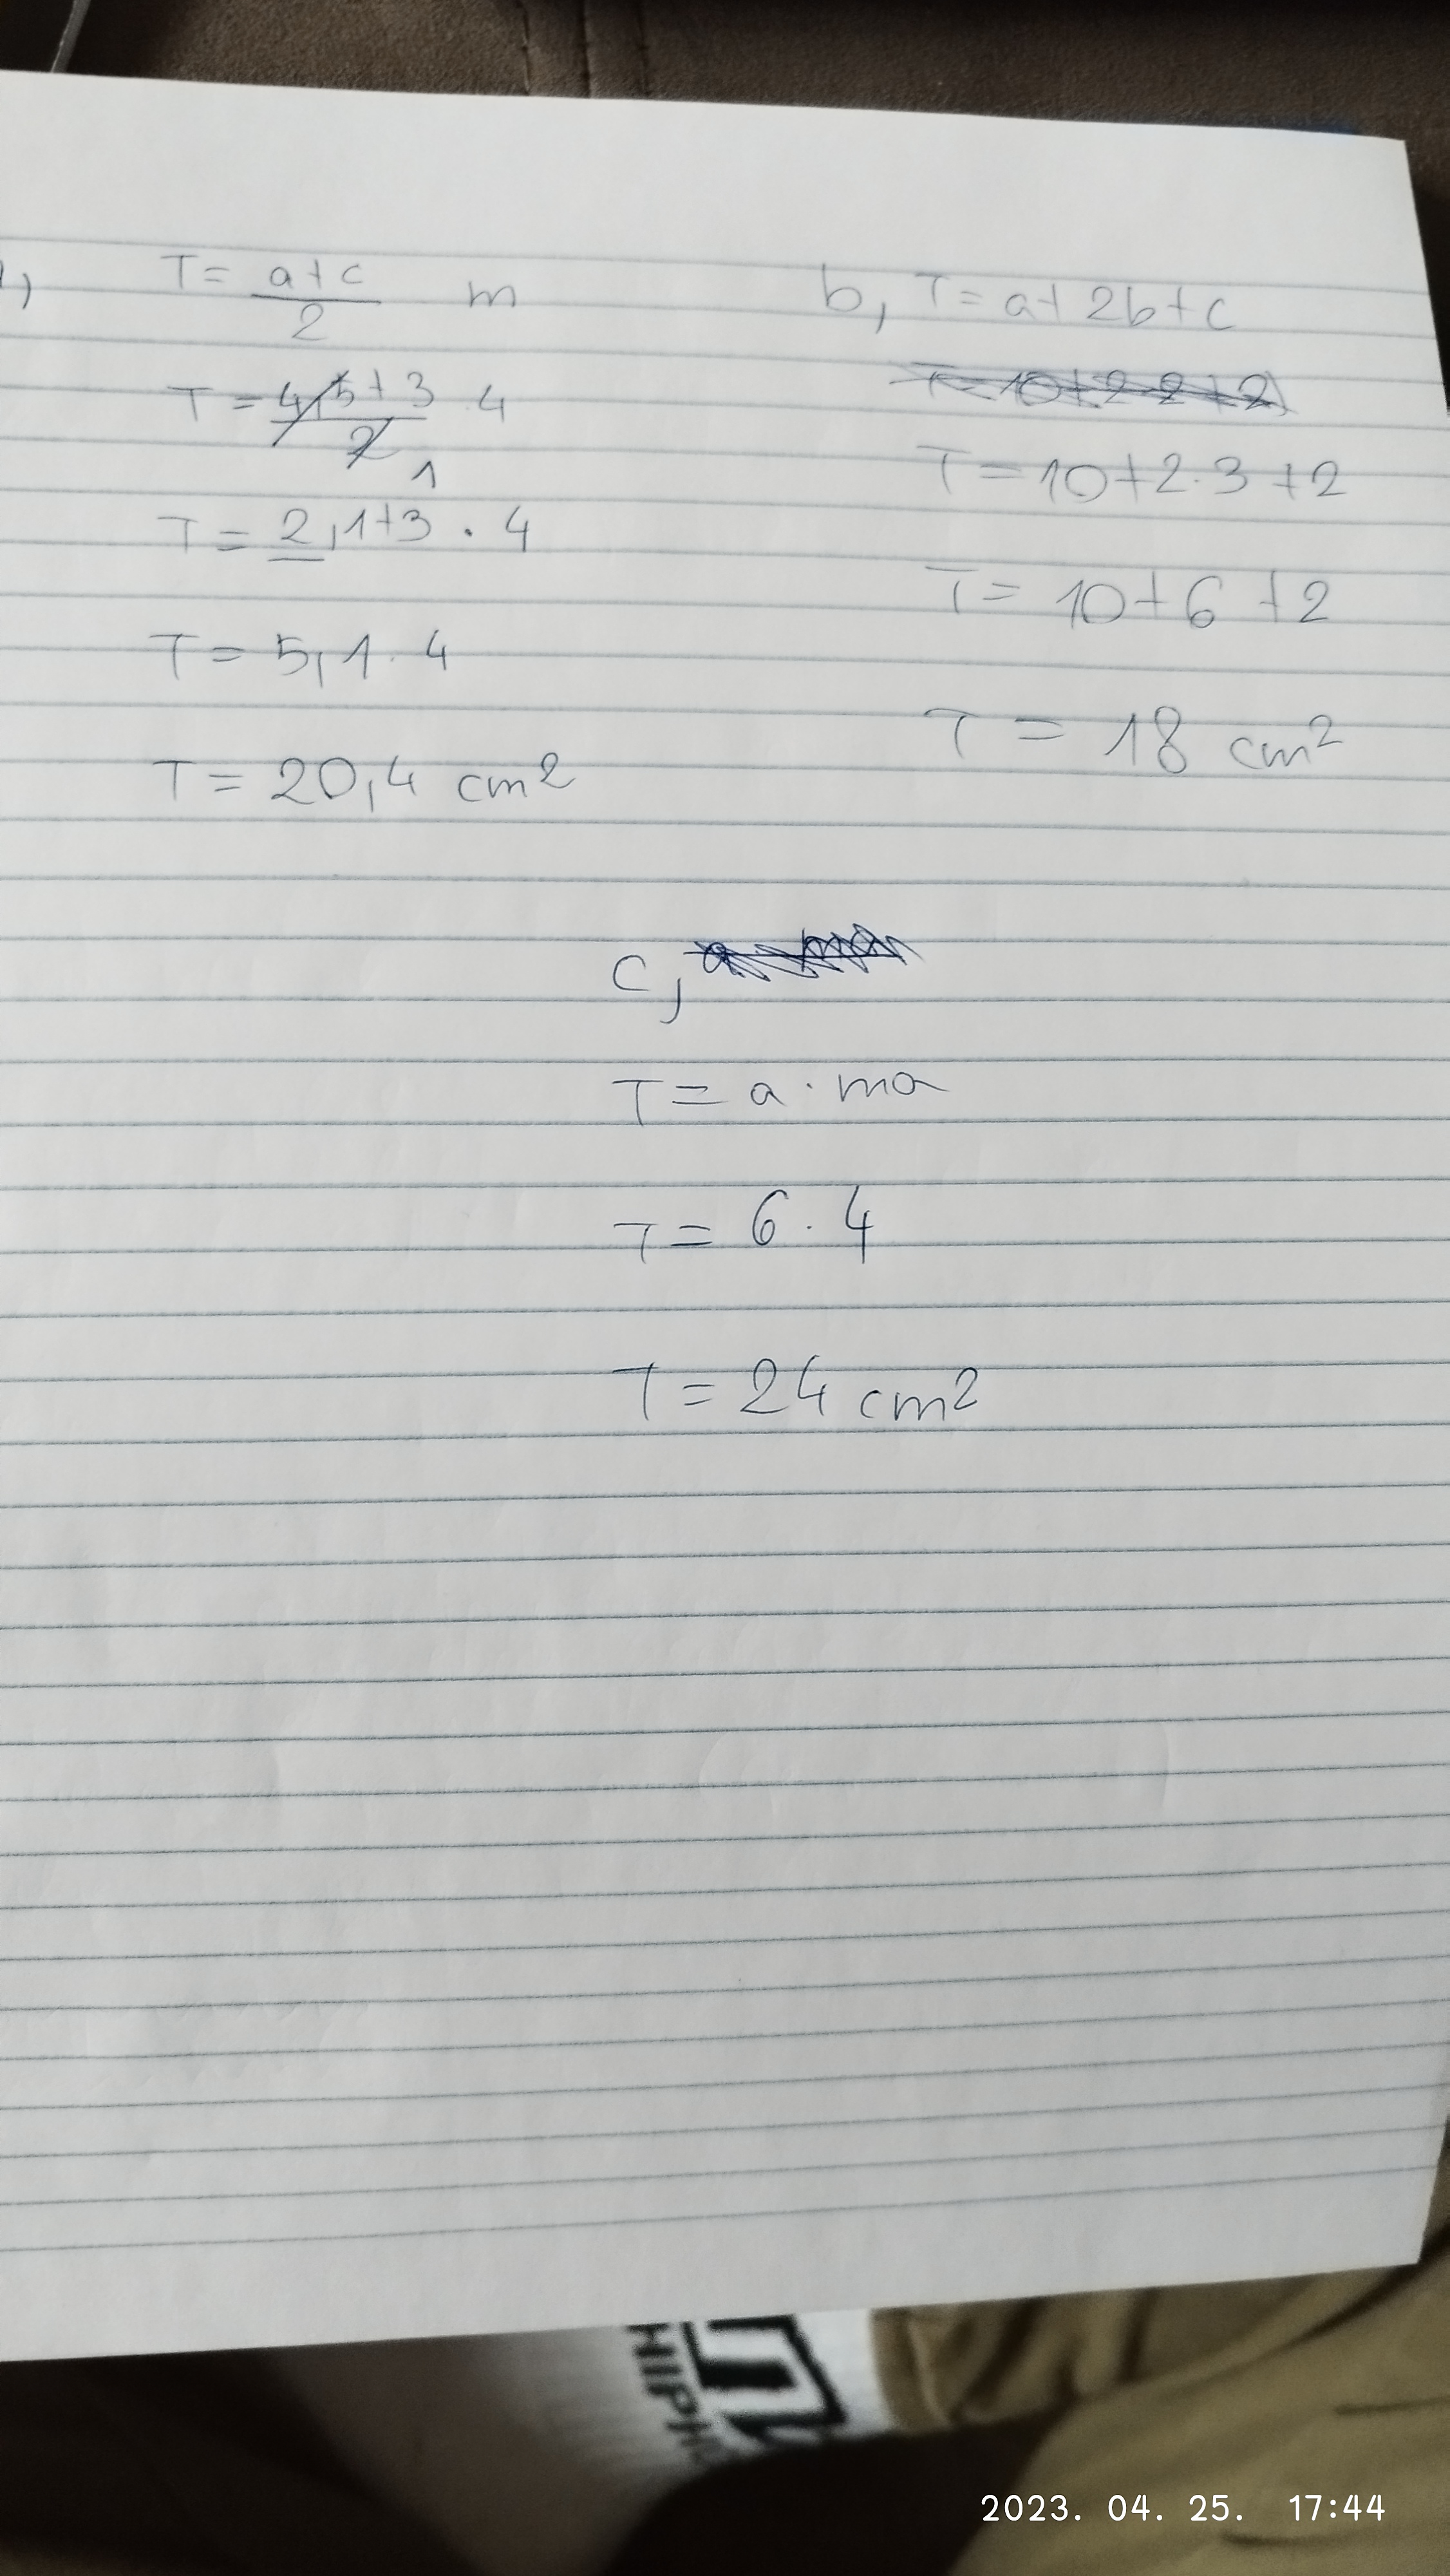 T = a+c/2 m
T = 4,5+3/2 · 4
1
T = 2,1+3 · 4
T = 5,1 · 4
T = 20,4 cm²
b, T = a + 2b + c
T = 10 + 2·3 + 2
T = 10 + 6 + 2
T = 18 cm²
c,
T = a · ma
T = 6 · 4
T = 24 cm²
2023. 04. 25. 17:44